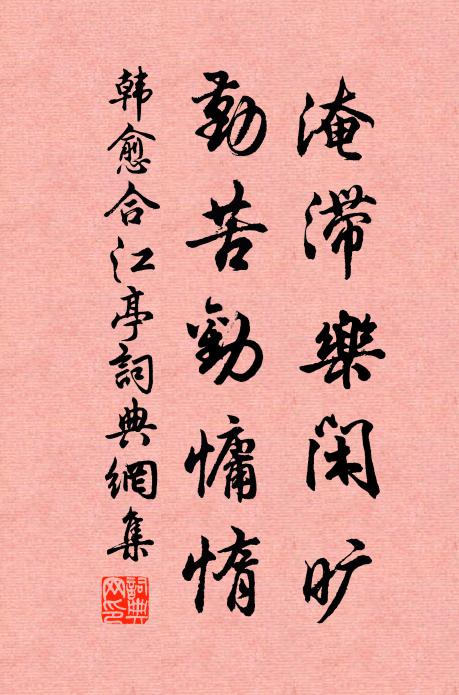 淹滯樂閑旷
勤苦勸慵惰
韩愈合江亭詞典網集
詞典网印